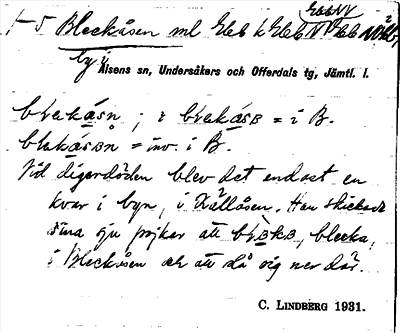 Bleckåsen ml
by i
Alsens sn, Undersåkers och Offerdals tg, Jämtl. l.
brekásn ; i brekásʙ = i B.
= inv. i B.
Vid digerdöden blev det endast en
kvar i byn, i Källåsen. Han skickade
sina sju pojkar att blecka,
i Bleckåsen och att slå sig ner där.
C. LINDBERG 1931.